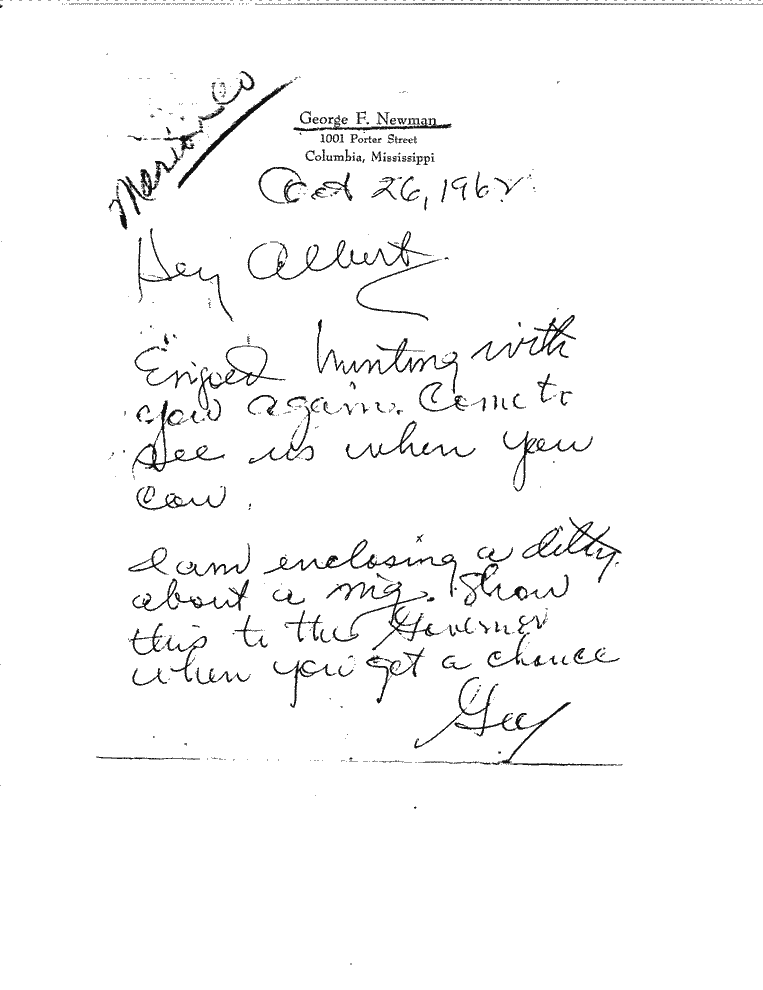 Marion Co
George F. Newman
1001 Porter Street
Columbia, Mississippi
Oct 26, 1962
Hey Albert
Enjoed hunting with
you again. Come to
see us when you
can.
I am enclosing a ditty
about a nig. Show
this to the Governer
when you get a chance